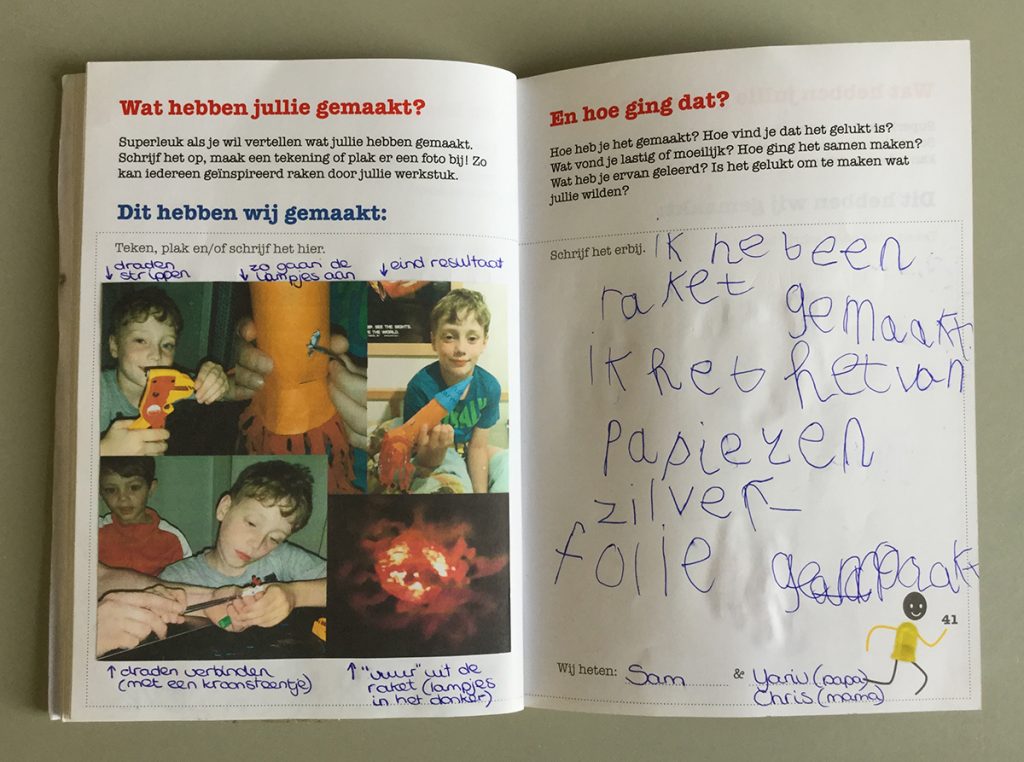 Wat hebben jullie gemaakt?
Superleuk als je wil vertellen wat jullie hebben gemaakt.
Schrijf het op, maak een tekening of plak er een foto bij! Zo
kan iedereen geïnspireerd raken door jullie werkstuk.
Dit hebben wij gemaakt:
Teken, plak en/of schrijf het hier.
↓ draden
strippen
↓ zo gaan de
lampjes aan
↓ eind resultaat
SEE THE SIGHTS.
THE WORLD.
↑ draden verbinden
(met een kroonsteentje)
↑ "vuur" uit de
raket (lampjes
in het donker)
En hoe ging dat?
Hoe heb je het gemaakt? Hoe vind je dat het gelukt is?
Wat vond je lastig of moeilijk? Hoe ging het samen maken?
Wat heb je ervan geleerd? Is het gelukt om te maken wat
jullie wilden?
Schrijf het erbij. ik heb een
raket gemaakt.
ik heb het van
papier en
zilver-
folie gemaakt
41
Wij heten: Sam & Yariv (papa)
Chris (mama)